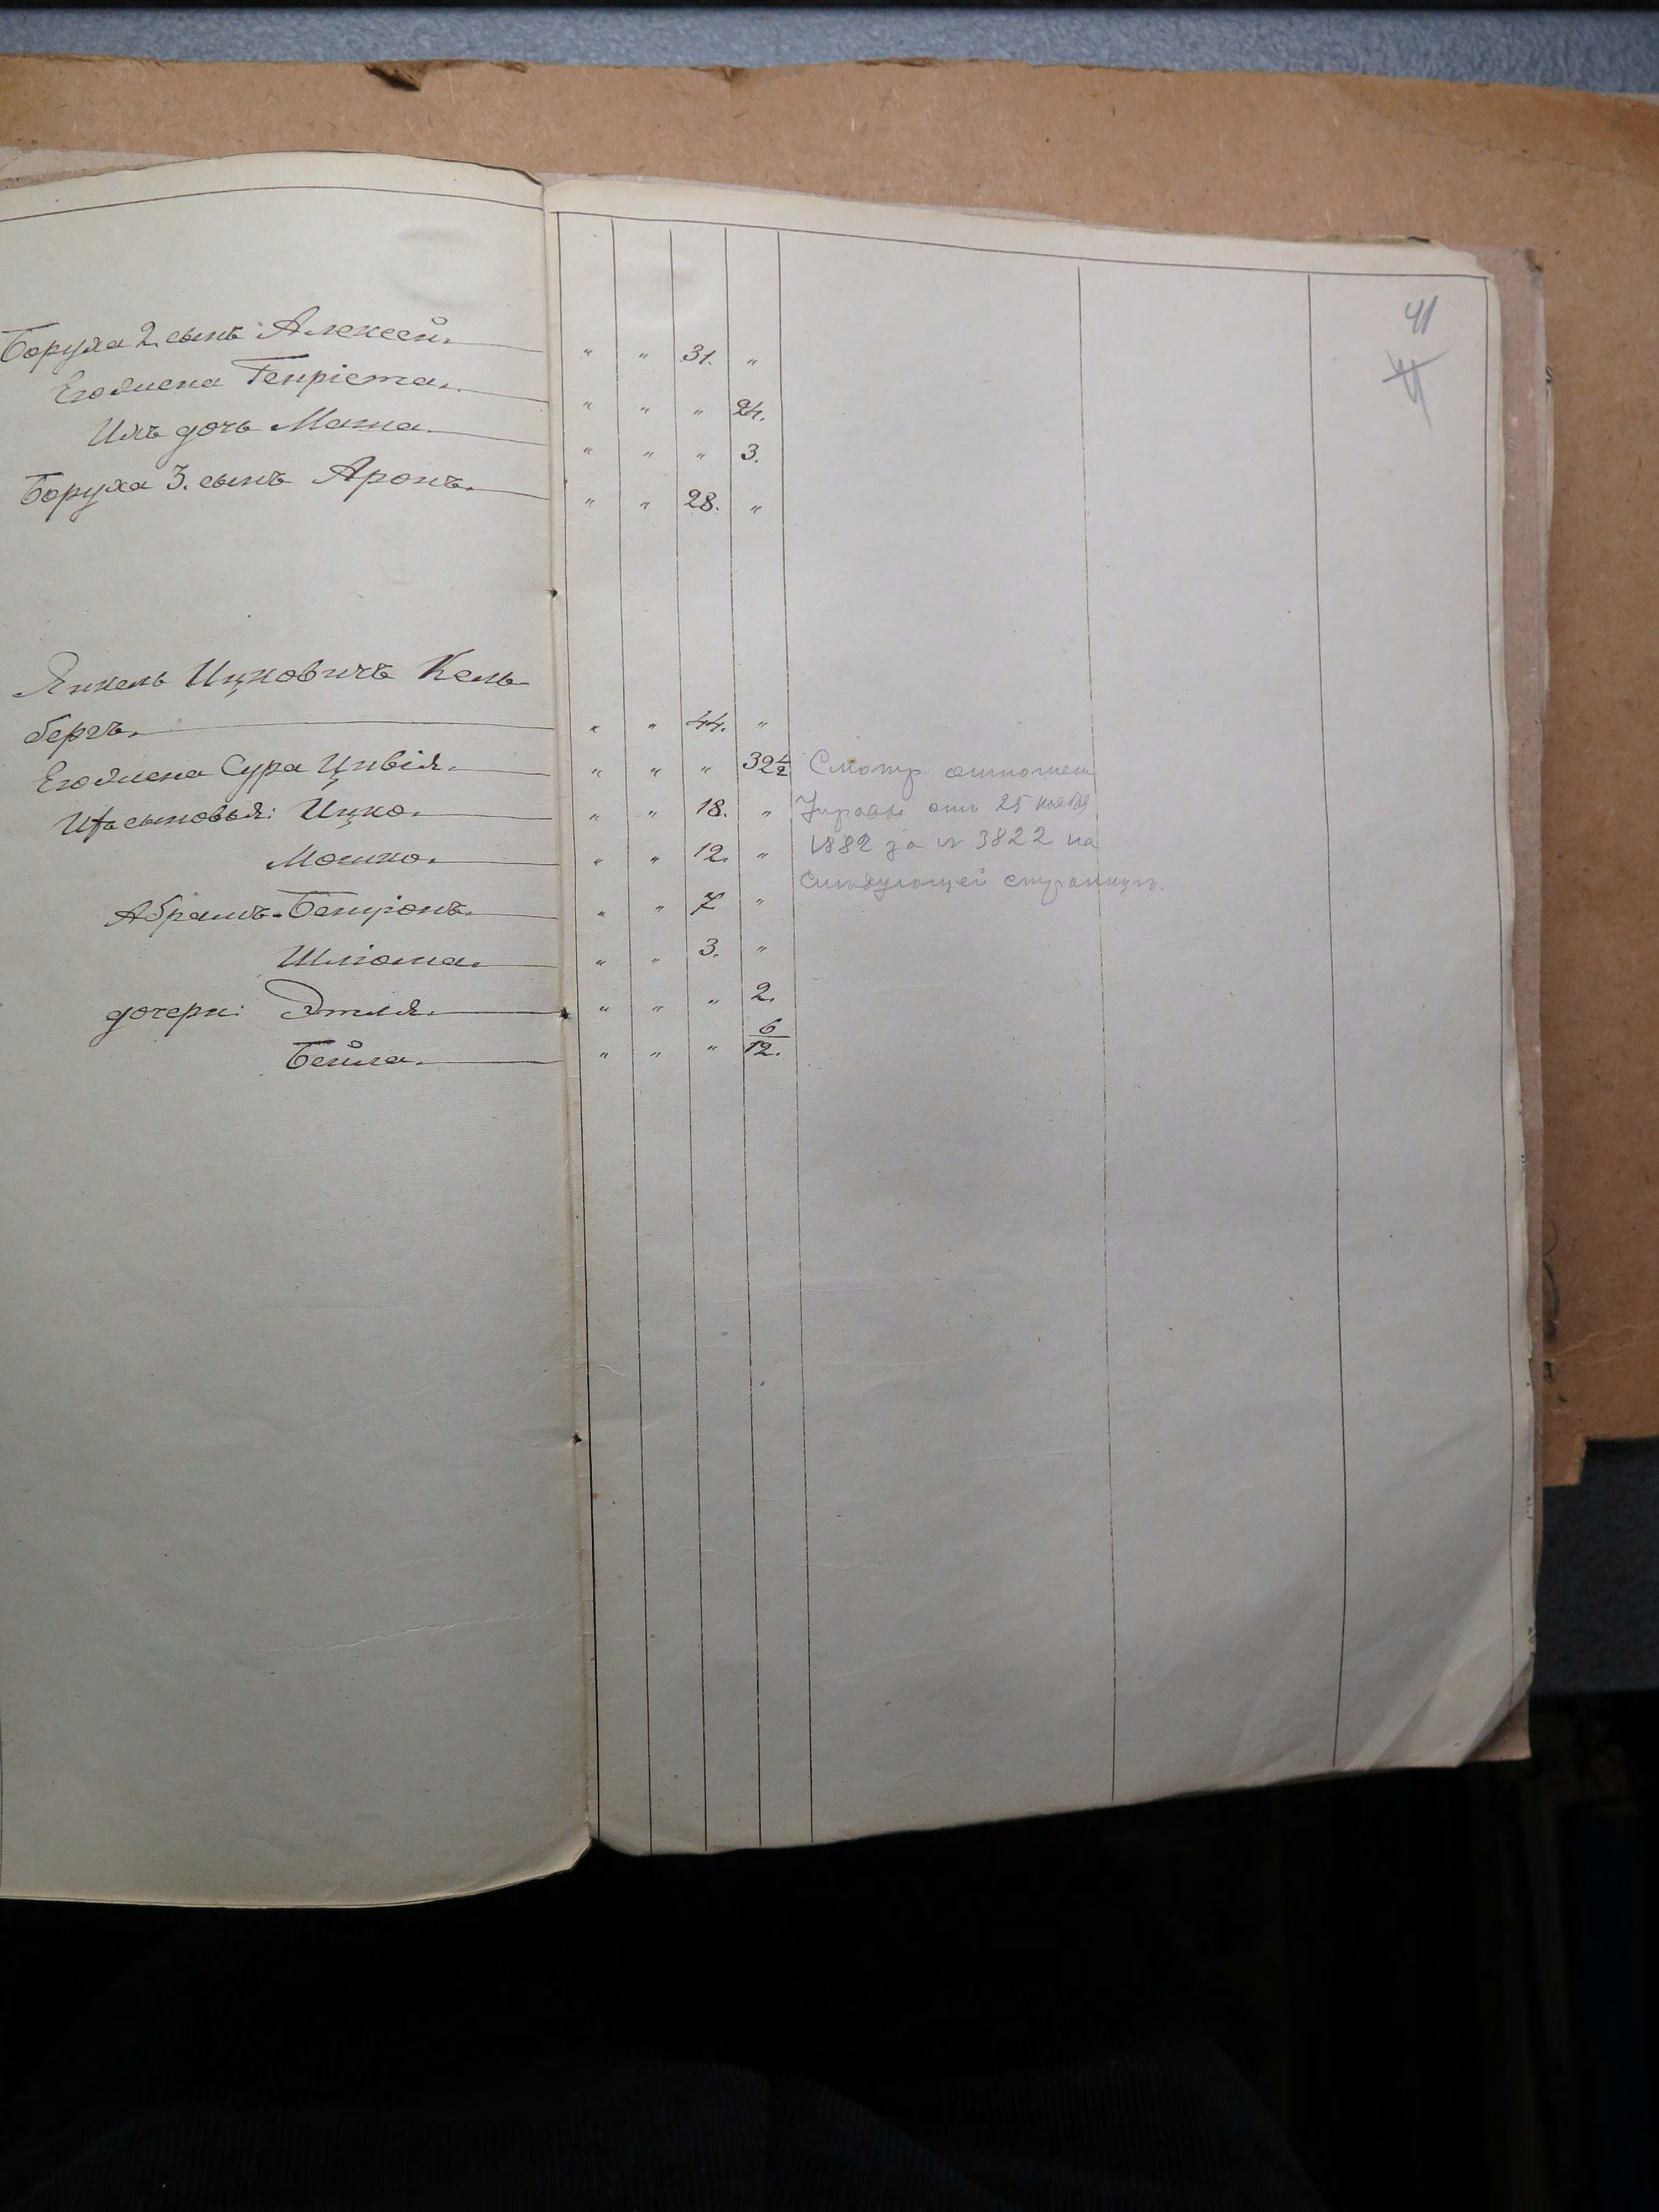 41
41
Боруха 2. сынъ Алексей. " " 31. "
Его жена Генріета. " " " 24.
Ихъ дочь Маша. " " " 3.
Боруха 3. сынъ Аронъ. " " 28. "
Янкель Ицковичъ Кель-
бергъ. " " 44. "
Его жена Сура Цивія. " " " 32 Смотр. отношен
Ихъ сыновья: Ицко. " " 18. " Управы отъ 25 ноября
Мошко. " " 12. " 1882 за № 3822 на
Абрамъ-Бенціонъ. " " 7 " следующей страницѣ.
Шліома. " " 3. "
дочери: Этля. " " " 2.
Бейла. " " " 6/12.